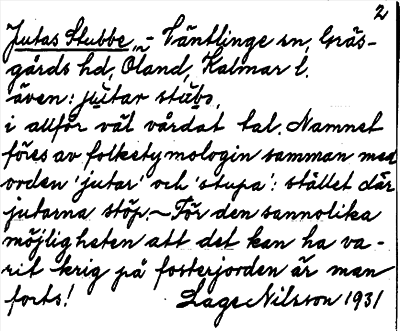 2
Jutas Stubbe „ – Väntlinge sn, Gräs-
gårds hd, Öland, Kalmar l.
även: jutar stubs,
i allför väl vårdat tal. Namnet
föres av folketymologin samman med
orden 'jutar' och 'stupa': stället där
jutarna stöp. – För den sannolika
möjligheten att det kan ha va-
rit krig på fosterjorden är man
forts! Lage Nilsson 1931